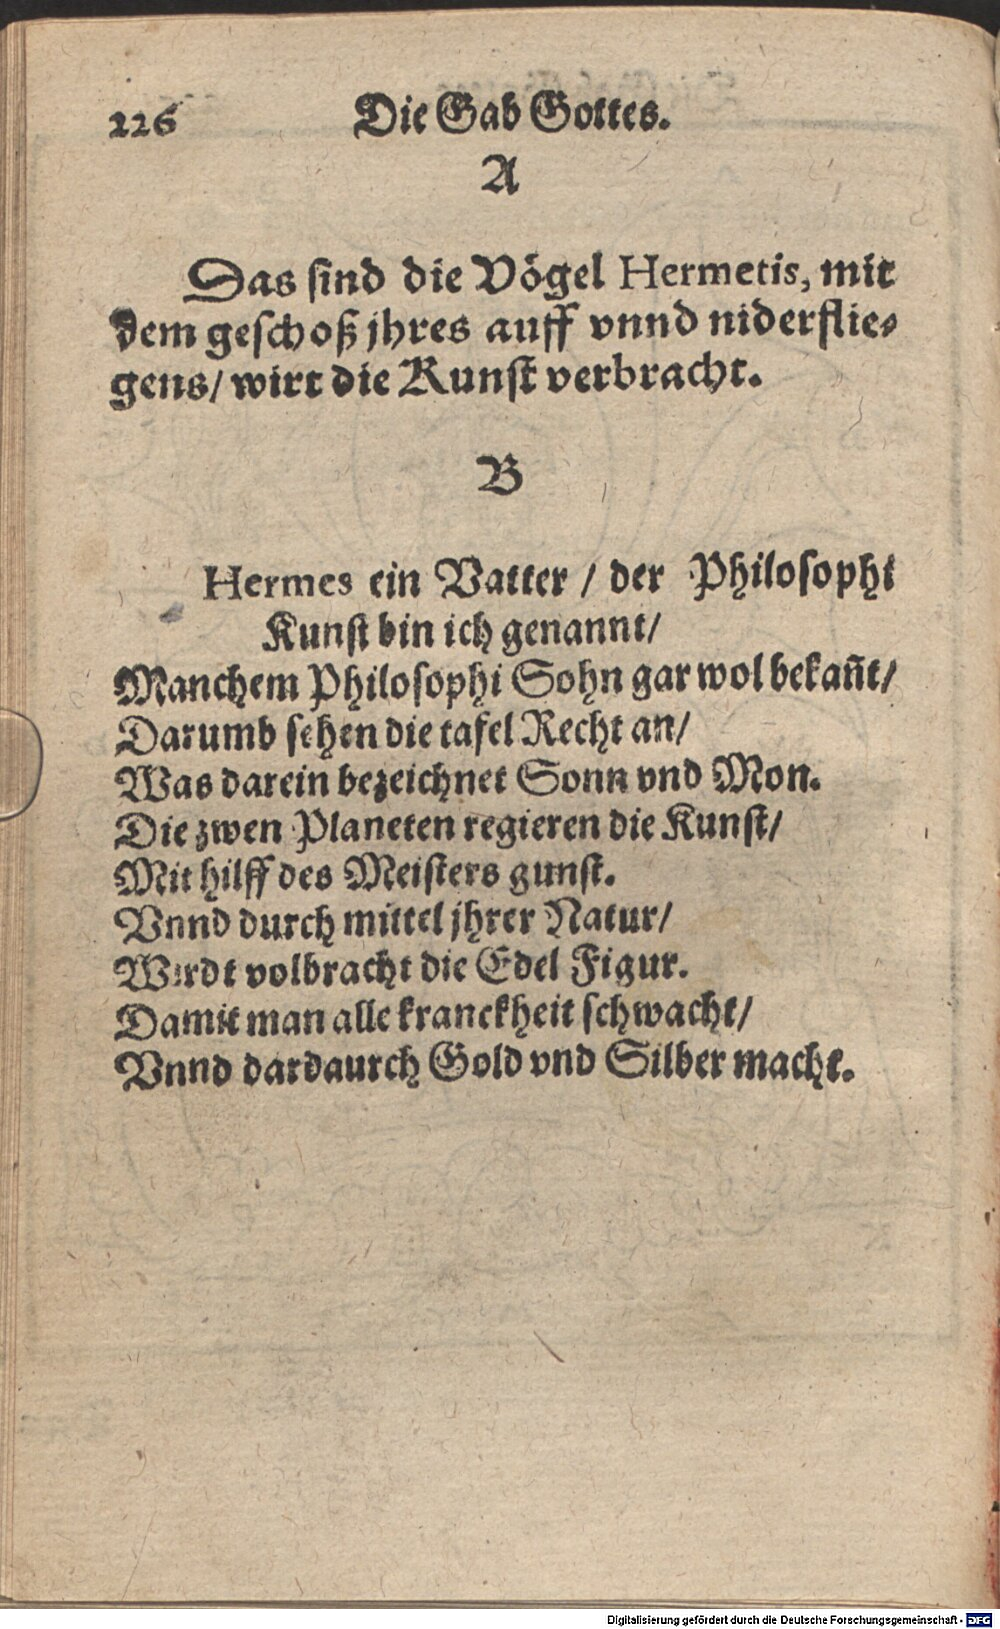 226 Die Gab Gottes.
A
Das sind die Vögel Hermetis, mit
dem geschoß jhres auff vnnd niderflie-
gens/ wirt die Kunst verbracht.
B
Hermes ein Vatter / der Philosophi
Kunst bin ich genannt/
Manchem Philosophi Sohn gar wol bekañt/
Darumb sehen die tafel Recht an/
Was darein bezeichnet Sonn vnd Mon.
Die zwen Planeten regieren die Kunst/
Mit hilff des Meisters gunst.
Vnnd durch mittel jhrer Natur/
Wirdt volbracht die Edel Figur.
Damit man alle kranckheit schwacht/
Vnnd dardaurch Gold vnd Silber macht.
Digitalisierung gefördert durch die Deutsche Forschungsgemeinschaft - DFG